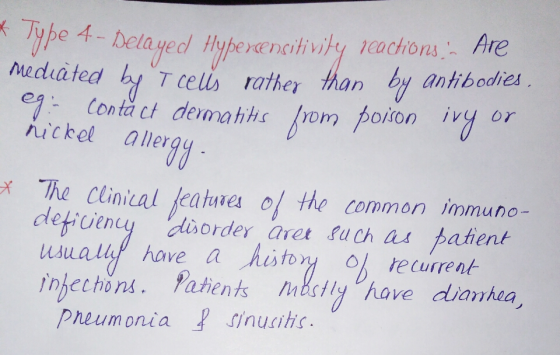 * Type 4 - Delayed Hypersensitivity reactions:- Are
mediated by T cells rather than by antibodies.
eg:- contact dermatitis from poison ivy or
nickel allergy.
* The clinical features of the common immuno-
deficiency disorder are such as patient
usually have a history of recurrent
infections. Patients mostly have diarrhea,
pneumonia & sinusitis.